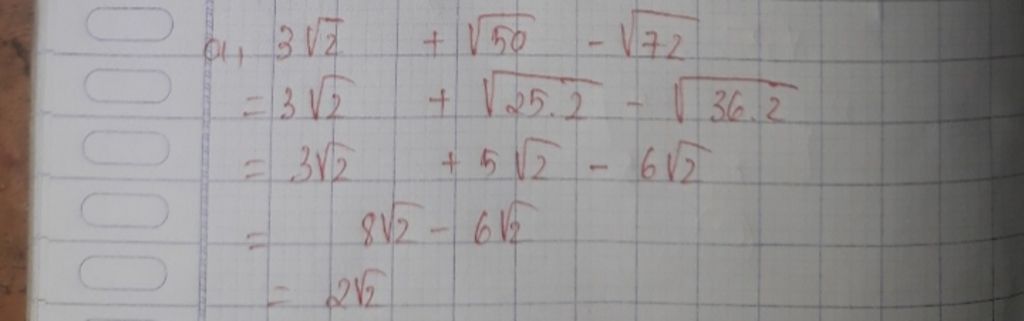 a, 3√2 + √50 - √72
= 3√2 + √25.2 - √36.2
= 3√2 + 5√2 - 6√2
= 8√2 - 6√2
= 2√2